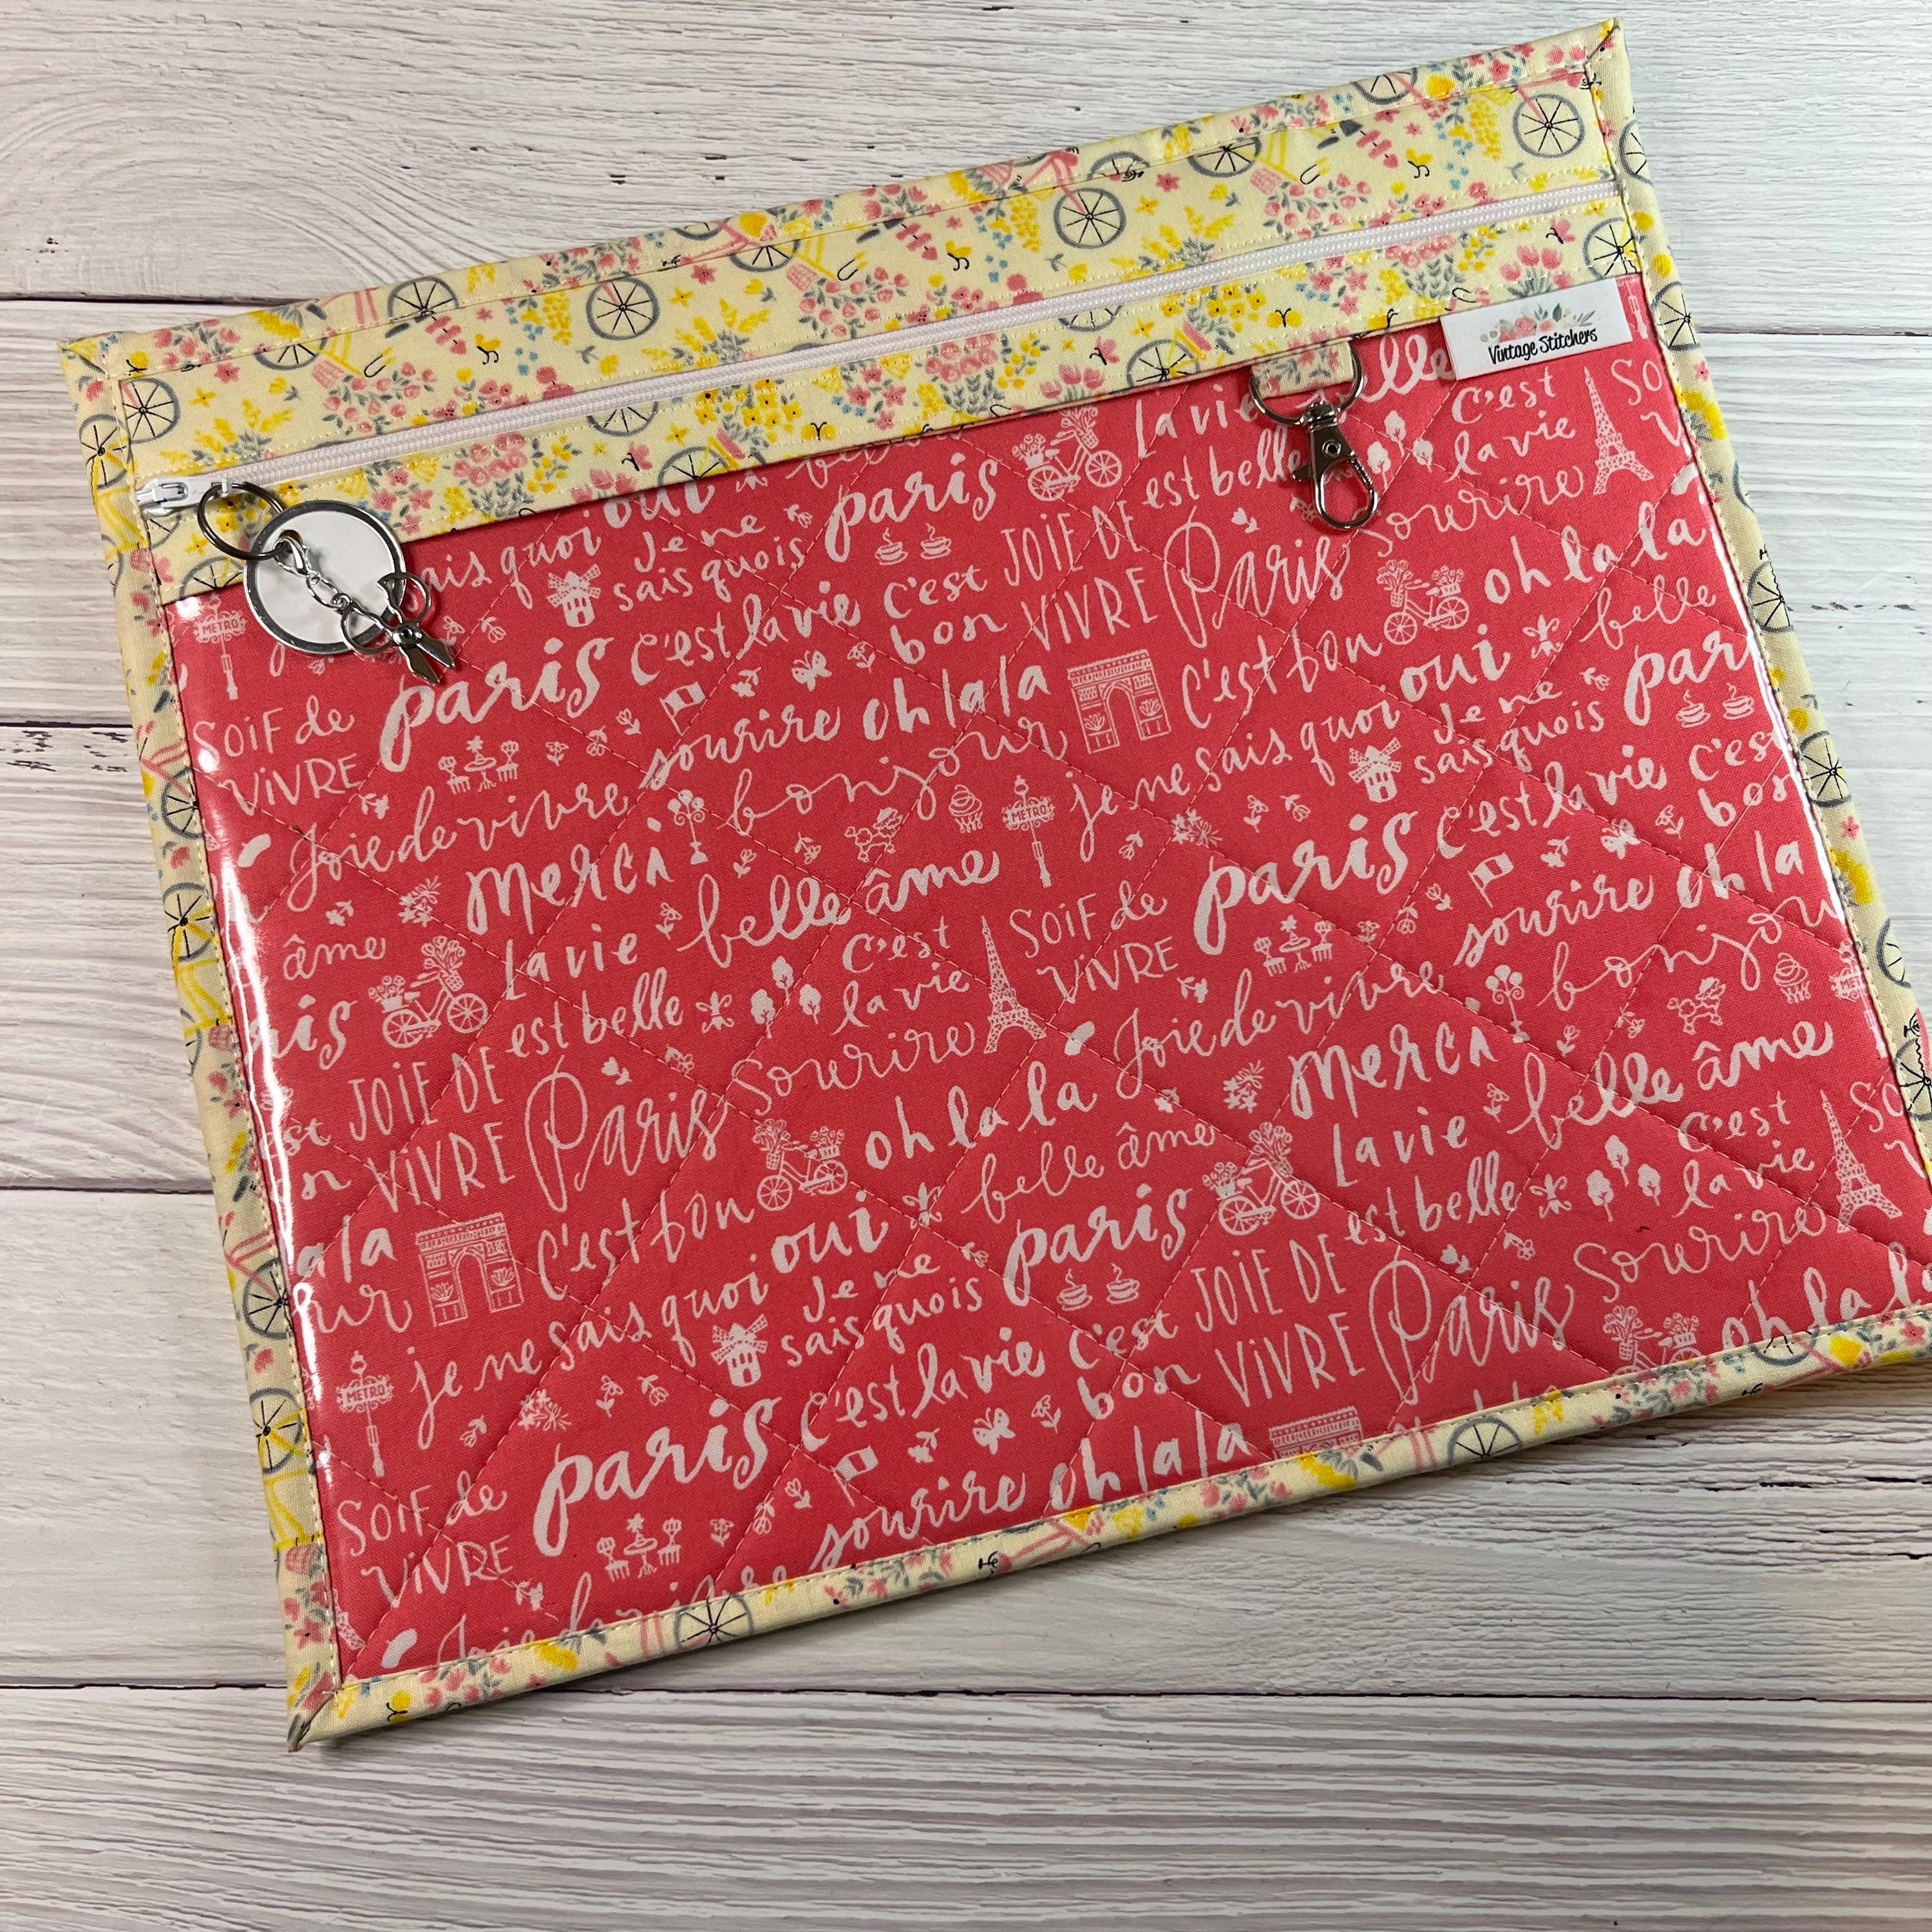 Vintage Stitchers
la vie
elle
c'est
la vie
So
oui
paris
est belle
sourire
nis quoi
Je ne
sais quois
JOIE DE
VIVRE
Paris
oh la la
METRO
c'est la vie
c'est
bon
belle
SOiF de
ViVRE
paris
sourire
oh la la
c'est bon
oui
Je ne
sais quois
par
Joie de vivre
bonjour
METRO
je ne sais quoi
c'est la vie
c'est
bon
merci
belle
âme
paris
sourire
oh la
âme
la vie
est belle
c'est
la vie
SOiF de
ViVRE
bonjou
ris
JOIE DE
VIVRE
Paris
sourire
oh la la
Joie de vivre
merci
belle
âme
est
on
c'est bon
oui
belle âme
la vie
est belle
c'est
la vie
So
la la
ur
je ne sais quoi
Je ne
sais quois
paris
JOIE DE
VIVRE
Paris
sourire
oh la l
METRO
c'est la vie
c'est
bon
SOiF de
ViVRE
paris
sourire
oh la la
Joie de vivre